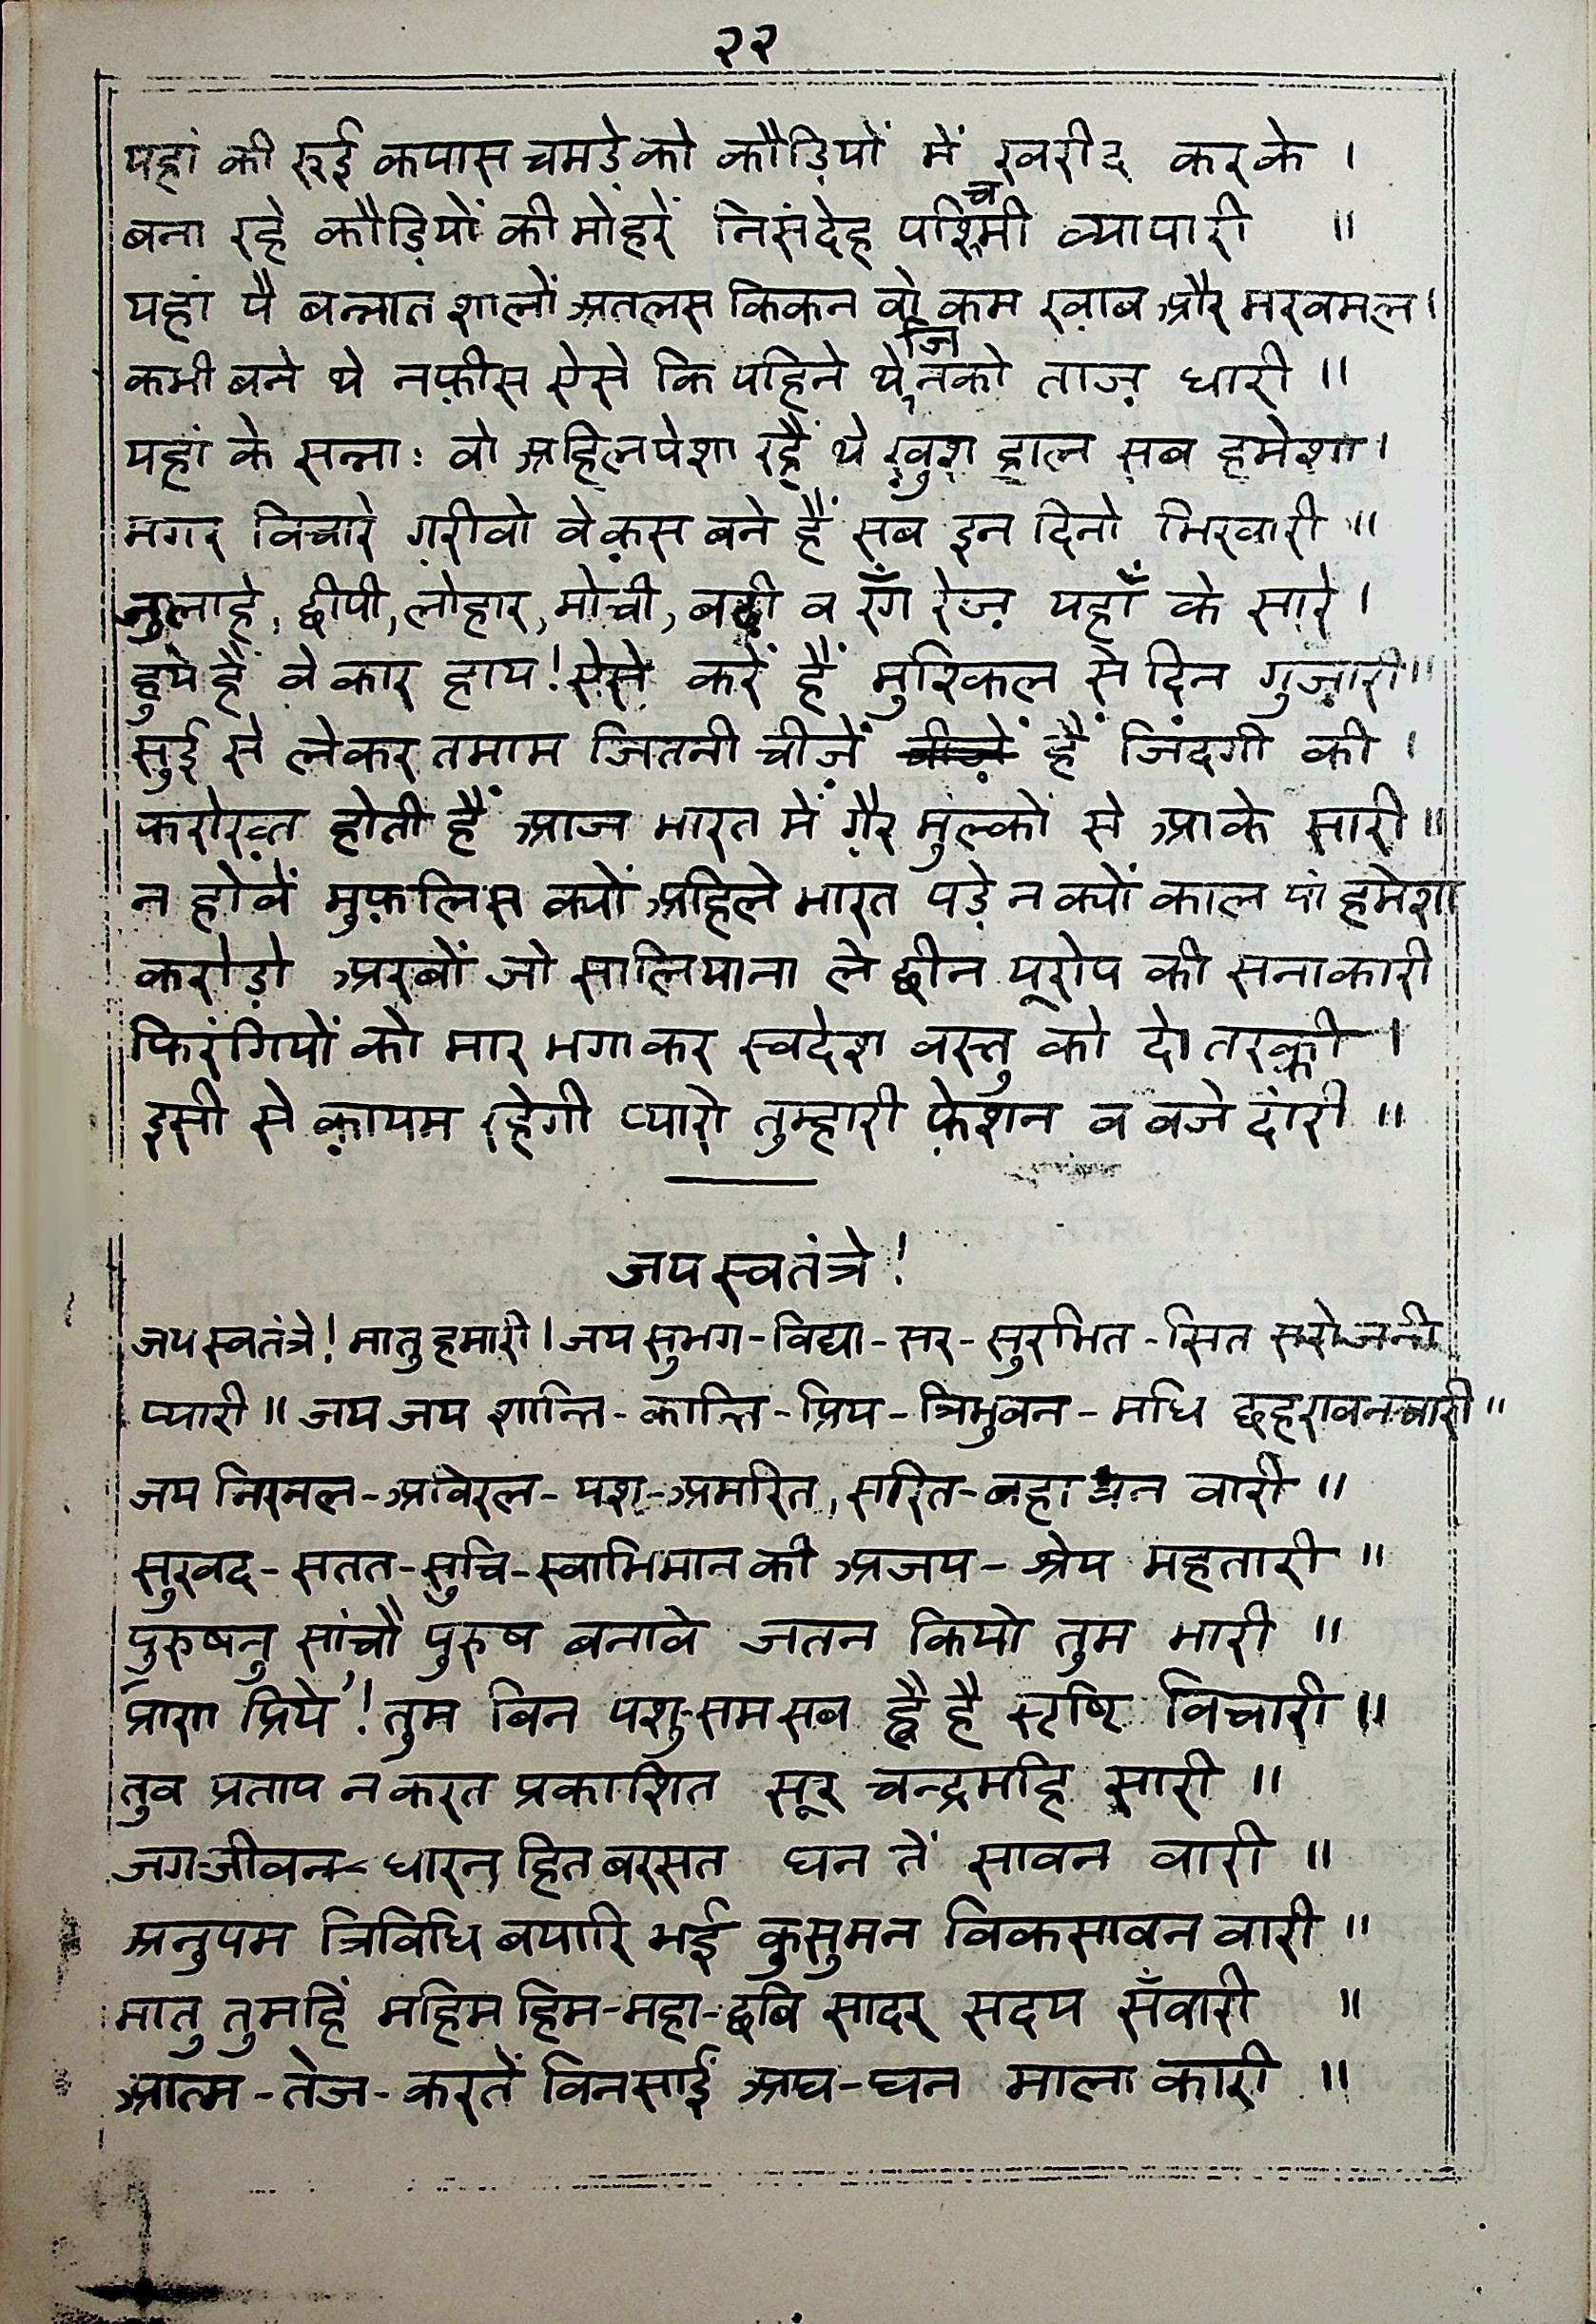 २२
यहां की रुई कपास चमड़े को कौड़ियों में खरीद करके ।
बना रहे कौड़ियों की मोहरें निसंदेह पश्चिमी व्यापारी ॥
यहां पै बन्नात शालों अतलस किकन वो कम ख़ाब और मखमल ।
कभी बने थे नफ़ीस ऐसे कि पहिने थे जिनको ताज़ धारी ॥
यहां के सन्नाः वो अहिलपेशा रहैं थे ख़ुश हाल सब हमेशा ।
मगर विचारे ग़रीवो वेक़स बने हैं सब इन दिनो भिखारी ॥
जुलाहे, छीपी, लोहार, मोची, बढ़ी व रँग रेज़ यहाँ के सारे ।
हुये हैं वेकार हाय! ऐसे करें हैं मुश्किल से दिन गुज़ारी ॥
सुई से लेकर तमाम जितनी चीज़ें हैं जिंदगी की ।
फरोख़्त होती हैं आज भारत में ग़ैर मुल्कों से आके सारी ॥
न होवें मुफ़लिस क्यों अहिले भारत पड़े न क्यों काल यां हमेशा
करोड़ो अरबों जो सालियाना ले छीन यूरोप की सनाकारी
फिरंगियों को मार भगाकर स्वदेश वस्तु को दो तरक़्क़ी ।
इसी से क़ायम रहेगी प्यारो तुम्हारी फ़ेशन व वजेदारी ॥
जय स्वतंत्रे !
जय स्वतंत्रे! मातु हमारी । जय सुभग-विद्या-सर-सुरभित-सित सरोजनी
प्यारी ॥ जय जय शान्ति-कान्ति-प्रिय-त्रिभुवन-मधि छहरावनवारी ॥
जय निरमल-अविरल-यश-अमरित, सरित-बहावन वारी ॥
सुखद-सतत-सुचि-स्वाभिमान की अजय-श्रेय महतारी ॥
पुरुषनु सांचौ पुरुष बनावे जतन कियो तुम भारी ॥
प्राण प्रिये! तुम बिन पशु-सम सब ह्वै है स्टष्टि विचारी ॥
तुव प्रताप न करत प्रकाशित सूर चन्द्रमहि सारी ॥
जग-जीवन-धारन हित बरसत घन तें सावन वारी ॥
अनुपम त्रिविधि बयारि भई कुसुमन विकसावन वारी ॥
मातु तुमहिं महिम हिम-महा-छबि सादर सदय सँवारी ॥
आत्म-तेज-करतें विनसाईं अघ-घन माला कारी ॥